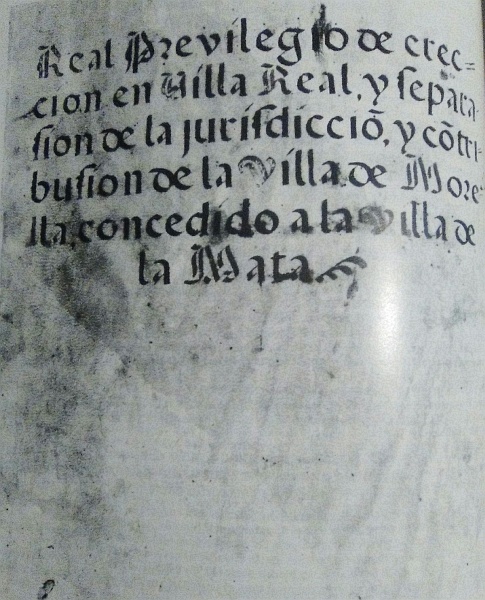 Real Previlegio de erec=
cion en Uilla Real, y separa
sion de la jurisdicciõ, y cõtri
busion de la Villa de More
lla, concedido a la Villa de
la Mata.